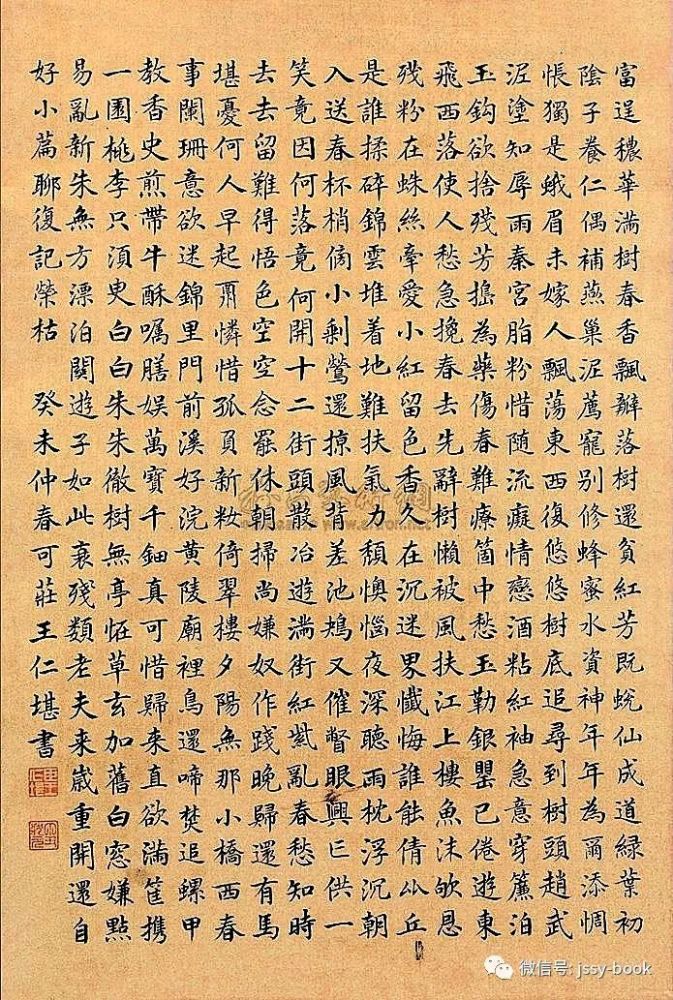 富逞穠華滿樹春香飄瓣落樹還貧紅芳既蛻仙成道綠葉初
陰子養仁偶補燕巢泥薦寵別修蜂蜜水資神年年為爾添惆
悵獨是蛾眉未嫁人飄蕩東西復悠悠樹底追尋到樹頭趙武
泥塗知辱雨秦宮脂粉惜隨流癡情戀酒粘紅袖急意穿簾泊
玉鈎欲捨殘芳搗為藥傷春難療箇中愁玉勒銀罌已倦遊東
飛西落使人愁急攙春去先辭樹懶被風扶江上樓魚沫欨恩
殘粉在蛛絲牽愛小紅留色香久在沉迷界懺悔誰能倩比丘
是誰揉碎錦雲堆着地難扶氣力頹懊惱夜深聽雨枕浮沉朝
入送春杯梢傍小剩鶯還掠風背差池鳩又催瞥眼興亡供一
笑竟因何落竟何開十二街頭散冶遊滿街紅紫亂春愁知時
去去留難得悟色空空念罷休朝掃尚嫌奴作踐晚歸還有馬
堪憂何人早起肅憐惜孤負新粧倚翠樓夕陽無那小橋西春
事闌珊意欲迷錦里門前溪好浣黃陵廟裡鳥還啼焚追螺甲
教香史煎帶牛酥囑膳娱萬寶千鈿真可惜歸来直欲滿筐携
一園桃李只須臾白白朱朱徹樹無亭怪草玄加舊白窓嫌點
易亂新朱無方漂泊關遊子如此衰殘類老夫来歲重開還自
好小篇聊復記榮枯 癸未仲春可莊王仁堪書
微信号: jssy-book